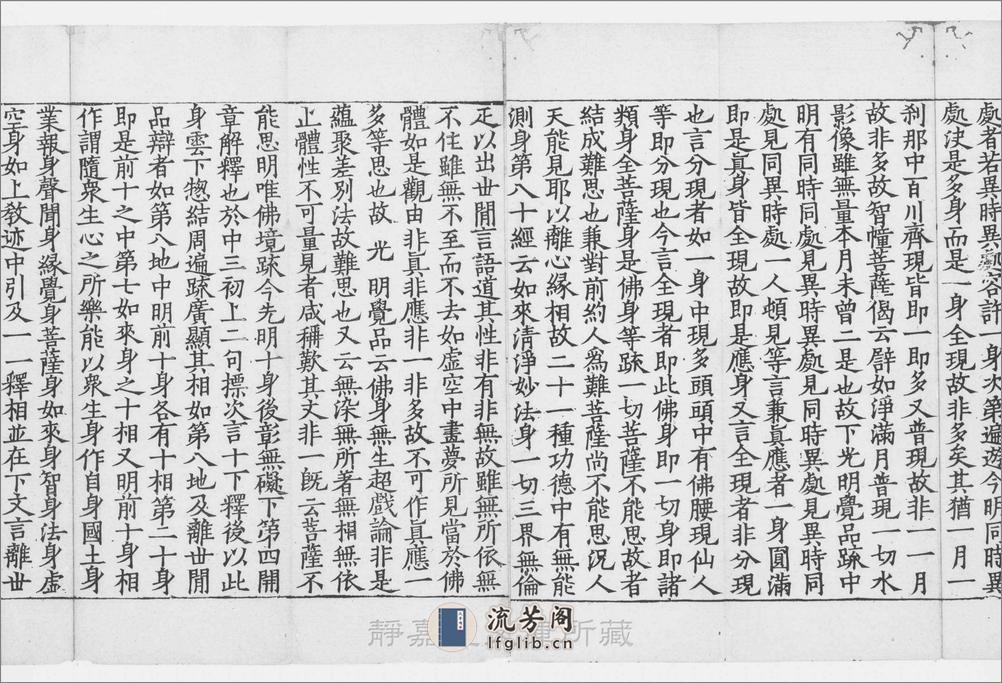 處者若異時異處容許一身次第遍遊今明同時異
處決是多身而是一身全現故非多矣其猶一月一
刹那中百川齊現皆即一即多又普現故非一一月
故非多故智幢菩薩偈云譬如淨滿月普現一切水
影像雖無量本月未曾二是也故下光明覺品疏中
明有同時同處見異時異處見同時異處見異時同
處見同異時處一人頓見等言兼真應者一身圓滿
即是真身皆全現故即是應身又言全現者非分現
也言分現者如一身中現多頭頭中有佛腰現仙人
等即分現也今言全現者即此佛身即一切身即諸
類身全菩薩身是佛身等疏一切菩薩不能思故者
結成難思也兼對前約人為難菩薩尚不能思況人
天能見耶以離心緣相故二十一種功德中有無能
測身第八十經云如來清淨妙法身一切三界無倫
疋以出世間言語道其性非有非無故雖無所依無
不住雖無不至而不去如虛空中畫夢所見當於佛
體如是觀由非真非應非一非多故不可作真應一
多等思也故 光 明覺品云佛身無生超戲論非是
蘊聚差別法故難思也又云無染無所著無相無依
止體性不可量見者咸稱歎其文非一既云菩薩不
能思明唯佛境疏今先明十身後彰無礙下第四開
章解釋也於中三初上二句摽次言十下釋後以此
身雲下惣結周遍疏廣顯其相如第八地及離世間
品辯者如第八地中明前十身各有十相第二十身
即是前十之中第七如來身之十相又明前十身相
作謂隨衆生心之所樂能以衆生身作自身國土身
業報身聲聞身緣覺身菩薩身如來身智身法身虛
空身如上教迹中引及一一釋相並在下文言離世
靜嘉堂文庫所藏
流芳阁
lfglib.cn